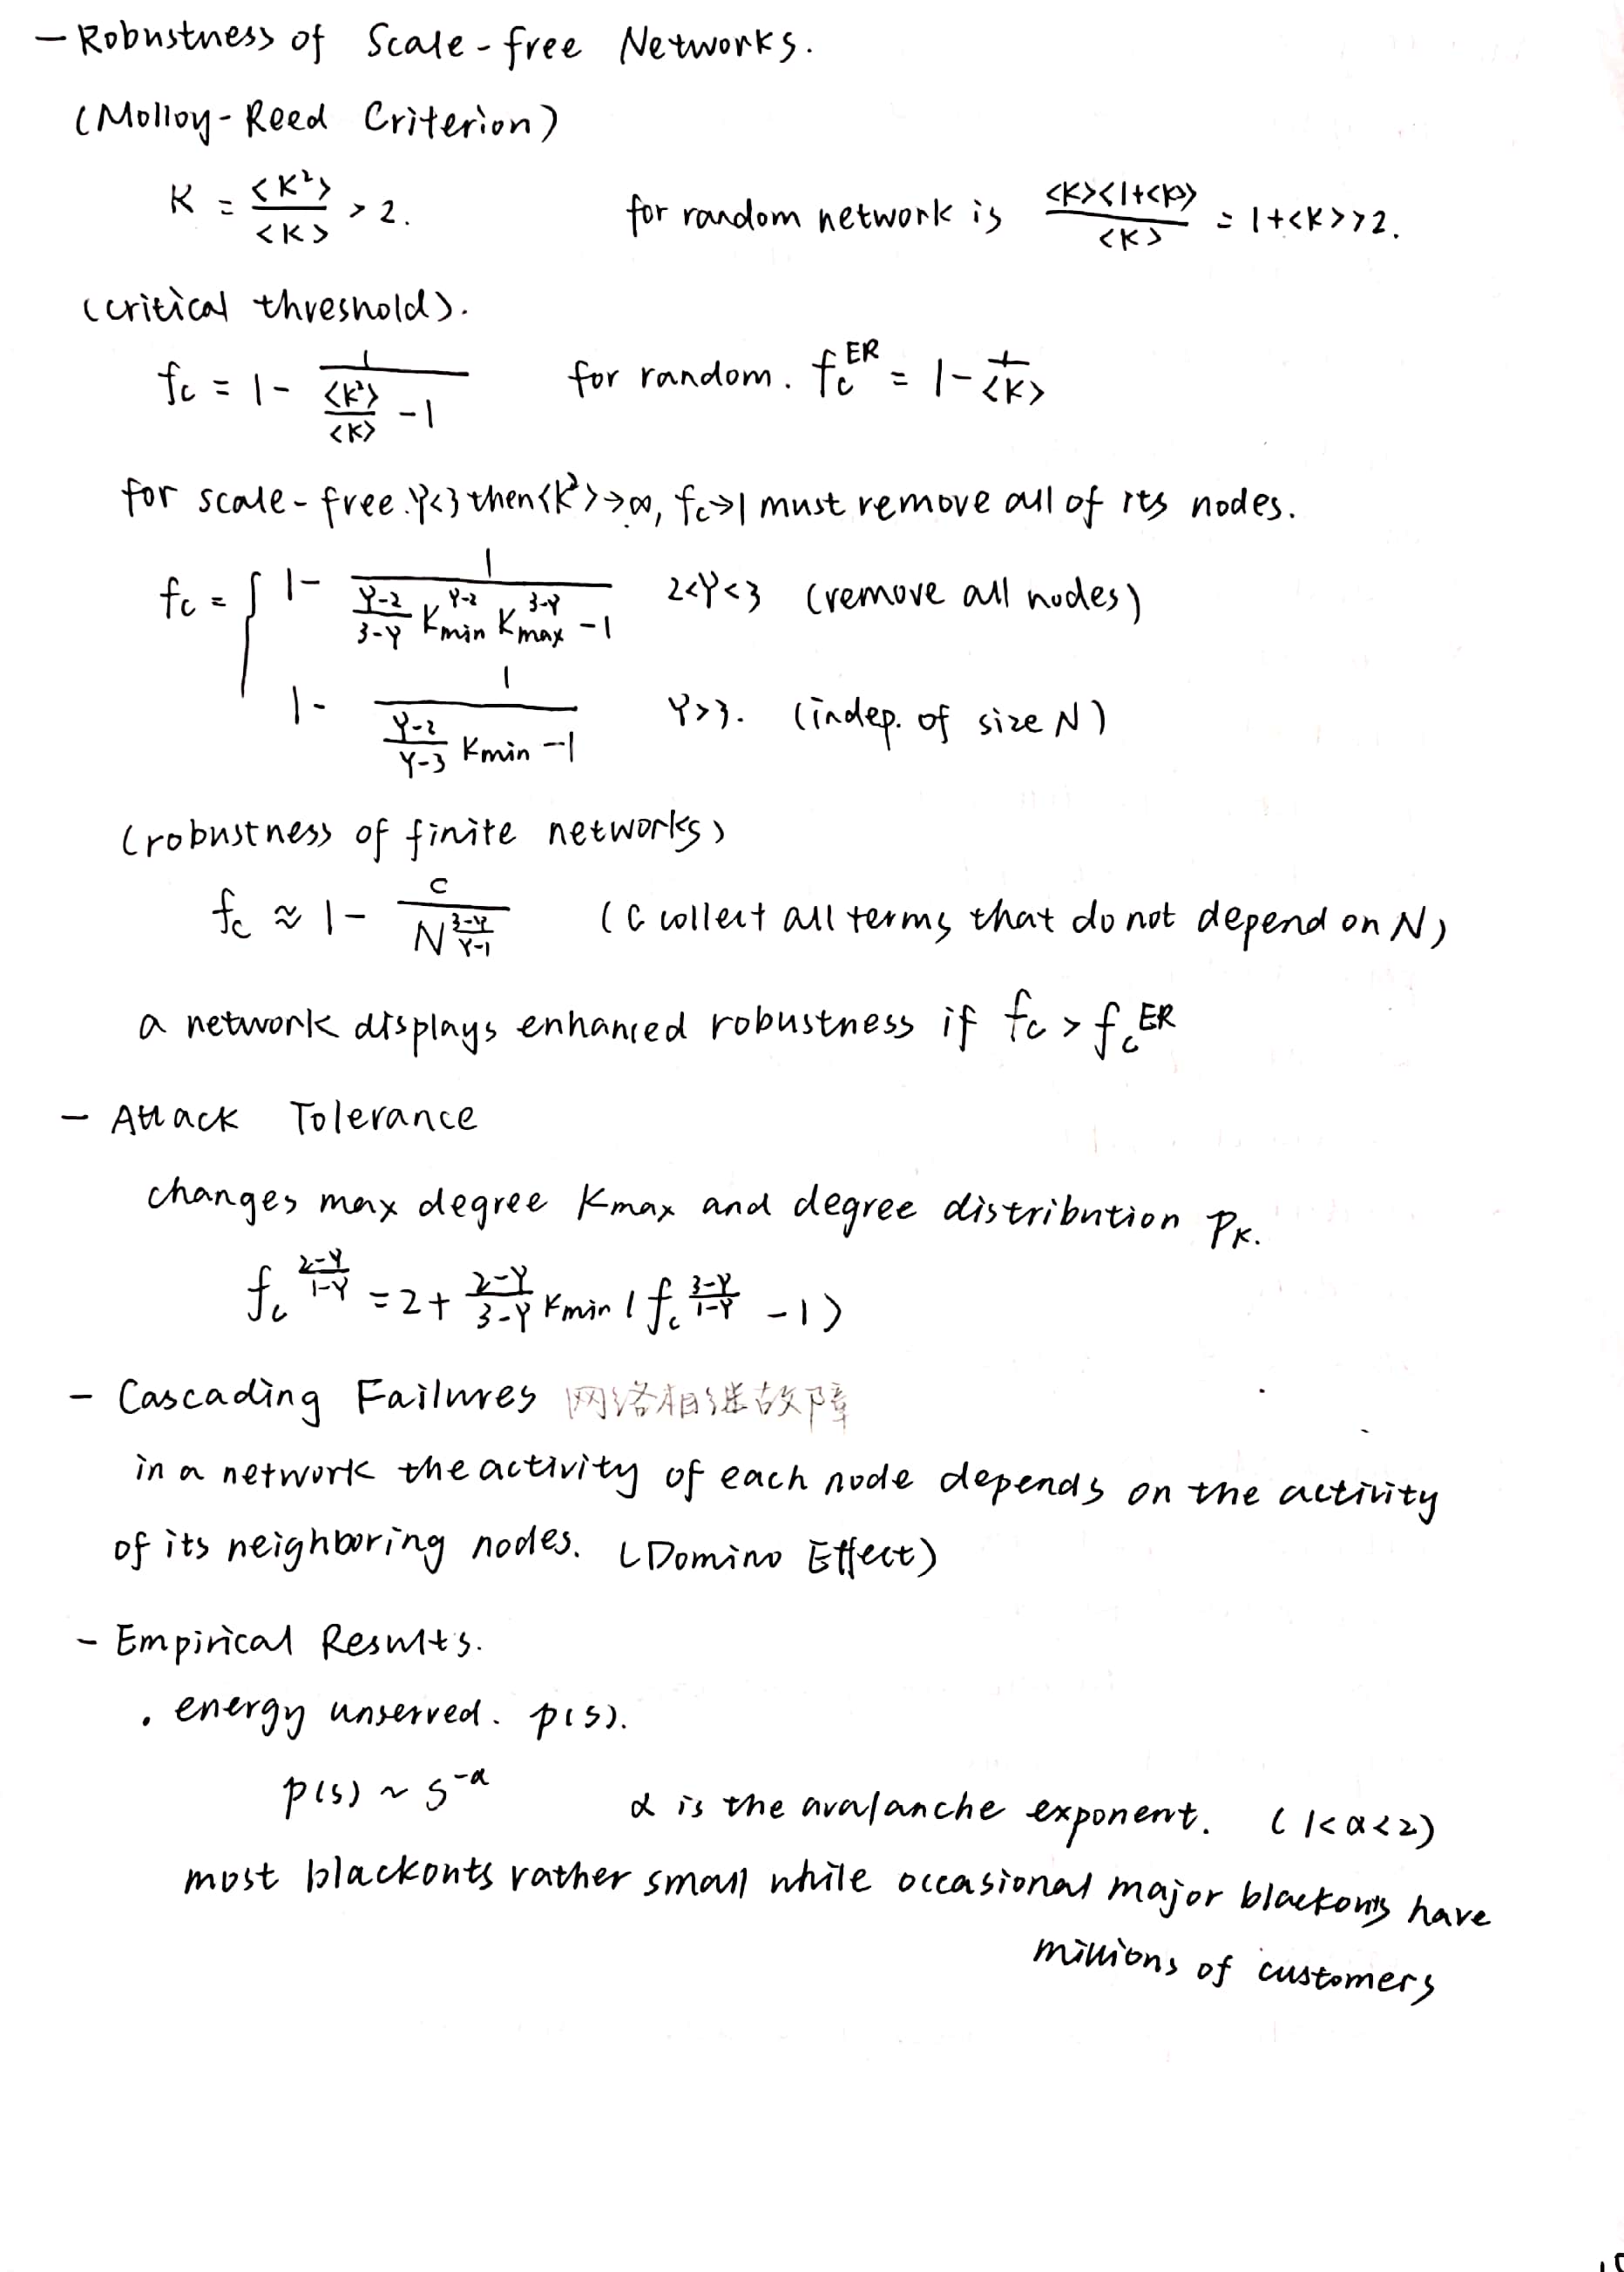 - Robustness of Scale-free Networks.
(Molloy-Reed Criterion)
K = <K²>/<K> > 2. for random network is <K><1+<K>>/<K> = 1+<K> > 2.
(critical threshold).
fc = 1 - 1/(<K²>/<K> - 1) for random. fc^ER = 1 - 1/<K>
for scale-free. γ<3 then <K²> → ∞, fc → 1 must remove all of its nodes.
fc = { 1 - 1/((γ-2)/(3-γ) Kmin^(γ-2) Kmax^(3-γ) - 1) 2<γ<3 (remove all nodes)
1 - 1/((γ-2)/(γ-3) Kmin - 1) γ>3. (indep. of size N)
(robustness of finite networks)
fc ≈ 1 - C/N^((3-γ)/(γ-1)) (C collect all terms that do not depend on N)
a network displays enhanced robustness if fc > fc^ER
- Attack Tolerance
changes max degree Kmax and degree distribution PK.
fc^((2-γ)/(1-γ)) = 2 + (2-γ)/(3-γ) Kmin (fc^((3-γ)/(1-γ)) - 1)
- Cascading Failures 网络相继故障
in a network the activity of each node depends on the activity
of its neighboring nodes. (Domino Effect)
- Empirical Results.
. energy unserved. p(s).
p(s) ~ s^-α α is the avalanche exponent. (1<α<2)
most blackouts rather small while occasional major blackouts have
millions of customers